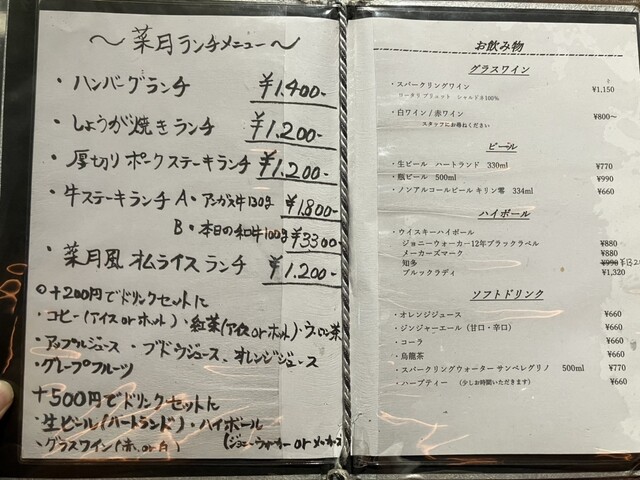 〜菜月ランチメニュー〜
・ハンバーグランチ ¥1.400-
・しょうが焼きランチ ¥1.200-
・厚切りポークステーキランチ ¥1.200-
・牛ステーキランチ A・アンガス牛130g ¥1.800-
B・本日の和牛100g ¥3300-
・菜月風オムライスランチ ¥1.200-
○+200円でドリンクセットに
・コーヒー(アイスorホット)・紅茶(アイスorホット)・ウーロン茶
・アップルジュース・ブドウジュース、オレンジジュース
・グレープフルーツ
+500円でドリンクセットに
・生ビール(ハートランド)・ハイボール
(ジョニーウォーカー or メーカーズ
・グラスワイン(赤.or白)
お飲み物
グラスワイン
・スパークリングワイン ¥1,150
シャルドネ100%
・白ワイン/赤ワイン ¥800〜
スタッフにお尋ねください
ビール
・生ビール ハートランド 330ml ¥770
・瓶ビール 500ml ¥990
・ノンアルコールビール キリン零 334ml ¥660
ハイボール
・ウイスキーハイボール
ジョニーウォーカー12年ブラックラベル ¥880
メーカーズマーク ¥880
知多 ¥990
ブルックラディ ¥1,320
ソフトドリンク
・オレンジジュース ¥660
・ジンジャーエール(甘口・辛口) ¥660
・コーラ ¥660
・烏龍茶 ¥660
・スパークリングウォーター サンペレグリノ 500ml ¥770
・ハーブティー (少しお時間いただきます) ¥660